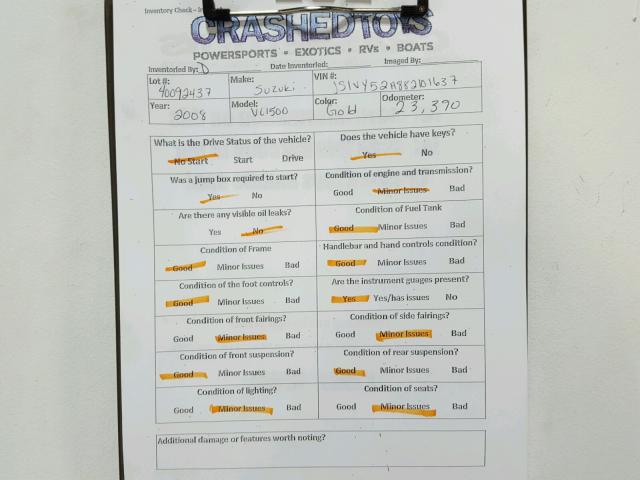 Inventory Check - 
CRASHEDTOYS
POWERSPORTS • EXOTICS • RVs • BOATS
Inventoried By: D Date Inventoried: Imaged By:
Lot #: 40092437 Make: Suzuki VIN #:
Year: 2008 Model: VL1500 Color: Gold Odometer: 23,390
What is the Drive Status of the vehicle? Does the vehicle have keys?
No Start Start Drive Yes No
Was a jump box required to start? Condition of engine and transmission?
Yes No Good Minor Issues Bad
Are there any visible oil leaks? Condition of Fuel Tank
Yes No Good Minor Issues Bad
Condition of Frame Handlebar and hand controls condition?
Good Minor Issues Bad Good Minor Issues Bad
Condition of the foot controls? Are the instrument guages present?
Good Minor Issues Bad Yes Yes/has issues No
Condition of front fairings? Condition of side fairings?
Good Minor Issues Bad Good Minor Issues Bad
Condition of front suspension? Condition of rear suspension?
Good Minor Issues Bad Good Minor Issues Bad
Condition of lighting? Condition of seats?
Good Minor Issues Bad Good Minor Issues Bad
Additional damage or features worth noting?